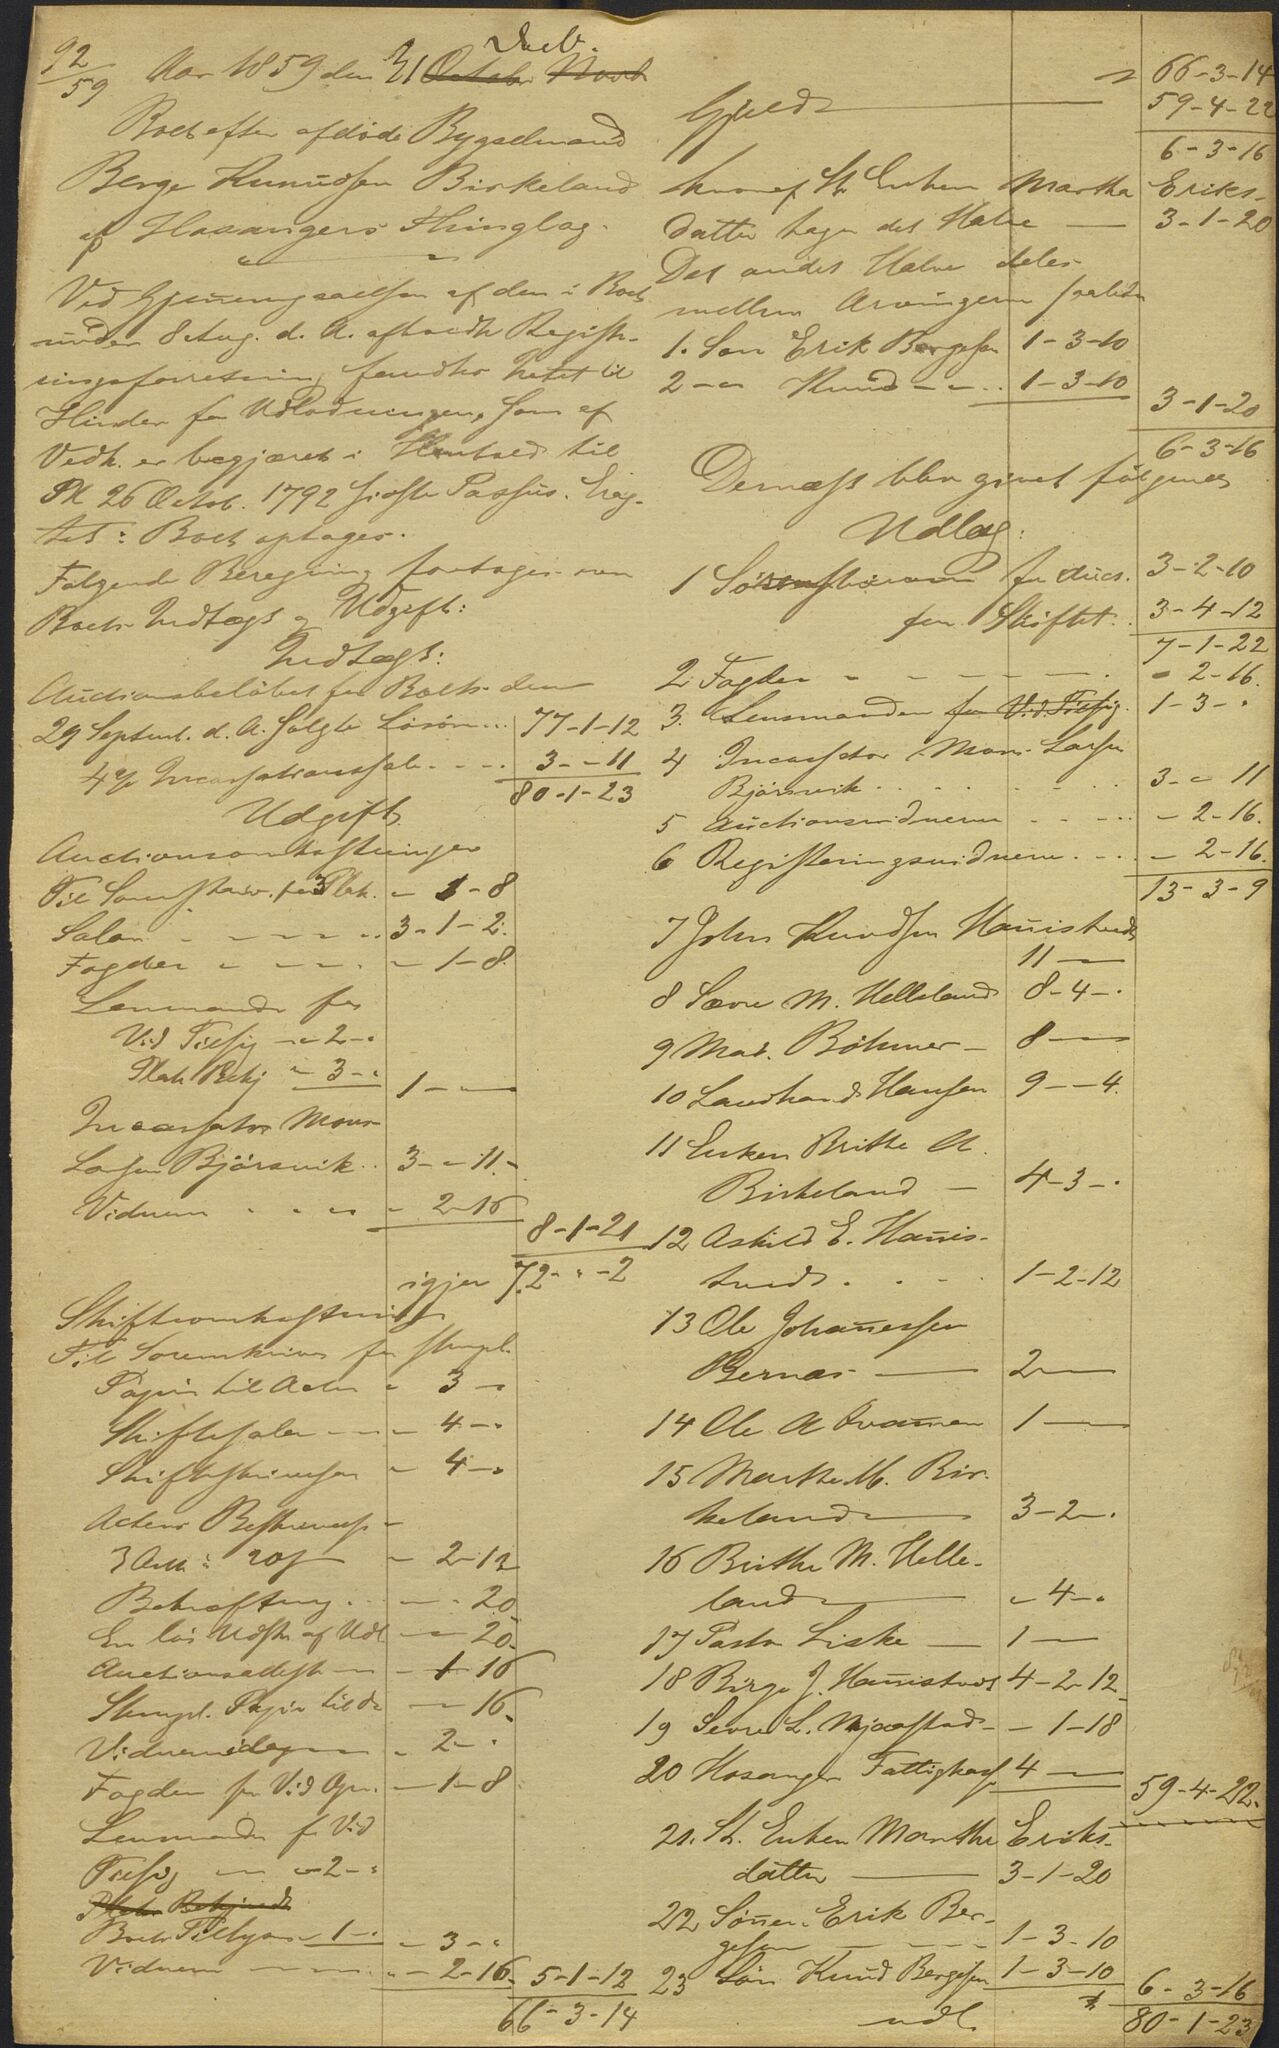 92
59
Aar 1859 den 31 Octobr Novb Decb.
Boet efter afdøde Bygselmand
Berge Knudsen Birkeland
af Hosangers Thinglag.
Ved Gjennemgaaelsen af den i Boet
under 8 Aug. d. A. afholdte Registe-
ringsforretning fandtes Intet til
Hinder for Udlodningen, som af
Vedk. er begjæret i Henhold til
Pl. 26 Octob. 1792 sidste Passus.
Boet optages.
Følgende Beregning foretages over
Boets Indtægt og Udgift:
Indtægt:
Auctionsbeløbet for Boets den
29 Septemb. d. A. solgte Løsøre ... 77-1-12
4 % Incassationssal. - - - 3- -11
80-1-23
Udgift.
Auctionsomkostninger
Til Sorenskriv. for 3 Plak. - 1-8
Salær - - - - 3-1-2.
Fogden - - - - 1-8.
Lensmanden for
Vid. Tilsig. - 2 -
Plak. Bekj. - 3 - 1 - -
Incassator Mons
Larsen Bjørsvik .. 3- - 11. -
Vidnerne - - - 2-16
8-1-21
igjen 72- " -2
Skifteomkostning
Til Sorenskriver for stempl.
Papir til Acten - 3 -
Skiftesalær - - 4 -
Skifteskrivelsen - 4 -
Actens Beskrivelse -
3 Ark - 2-12
Bekræftning . - - 20
En løs Udskr. af Udl - - 20.
Auctionsattest - - 1 16
Stempl. Papir til do - - 16.
Vidnerne - 2 - .
Fogden for Vid. Opn. - 1-8.
Lensmanden for Vid
Tilsig - - 2 -
Plak. Bekjendt
Boets Tilsyn - 1 - - 3 -
Vidnerne - - - 2-16. 5-1-12
66-3-14
66-3-14
Gjeld 59-4-22
6-3-16
hvoraf St. Enken Martha Eriks-
datter tager det Halve - 3-1-20
Det andet Halve deles
mellem Arvingerne saaledes
1. Søn Erik Bergesen 1-3-10
2 - Knud - - .. 1-3-10
3-1-20
6-3-16
Dernæst blev givet følgende
Udlæg:
1 Sorenskriveren for Auct. 3-2-10
for Skiftet. 3-4-12
7-1-22
2 Fogden - - - - - 2-16.
3. Lensmanden for Vid. Tilsig. 1-3- .
4 Incassator Mons Larsen
Bjørsvik . . . . 3- - 11
5 Auctionsvidnerne - - - - 2-16.
6 Registeringsvidnerne . - . - 2-16.
13-3-9
7 John Knudsen Hannistveds
11 -
8 Sævre M. Helleland 8-4- .
9 Mad. Böhmer - 8 -
10 Landhand. Hansen 9 - - 4.
11 Enken Brithe A.
Birkeland - 4-3- .
12 Askild E. Hannis-
tveds . . - 1-2-12
13 Ole Johannessen
Bernæs - 2 -
14 Ole A 1 -
15 Marthe M. Bir-
keland - 3-2- .
16 Brithe M. Helle-
land - - 4 - .
17 Pastor Liske - 1 -
18 Birge J. Hannistveds 4-2-12.
19 Sevre L. Mjøsstad - - 1-18
20 Hosanger Fattigkasse 4 - 59-4-22.
21. St. Enken Marthe Eriks-
datter - 3-1-20
22 Sønnen Erik Ber-
gesen - - - 1-3-10
23 Søn Knud Bergesen 1-3-10 6-3-16
udl. 80-1-23